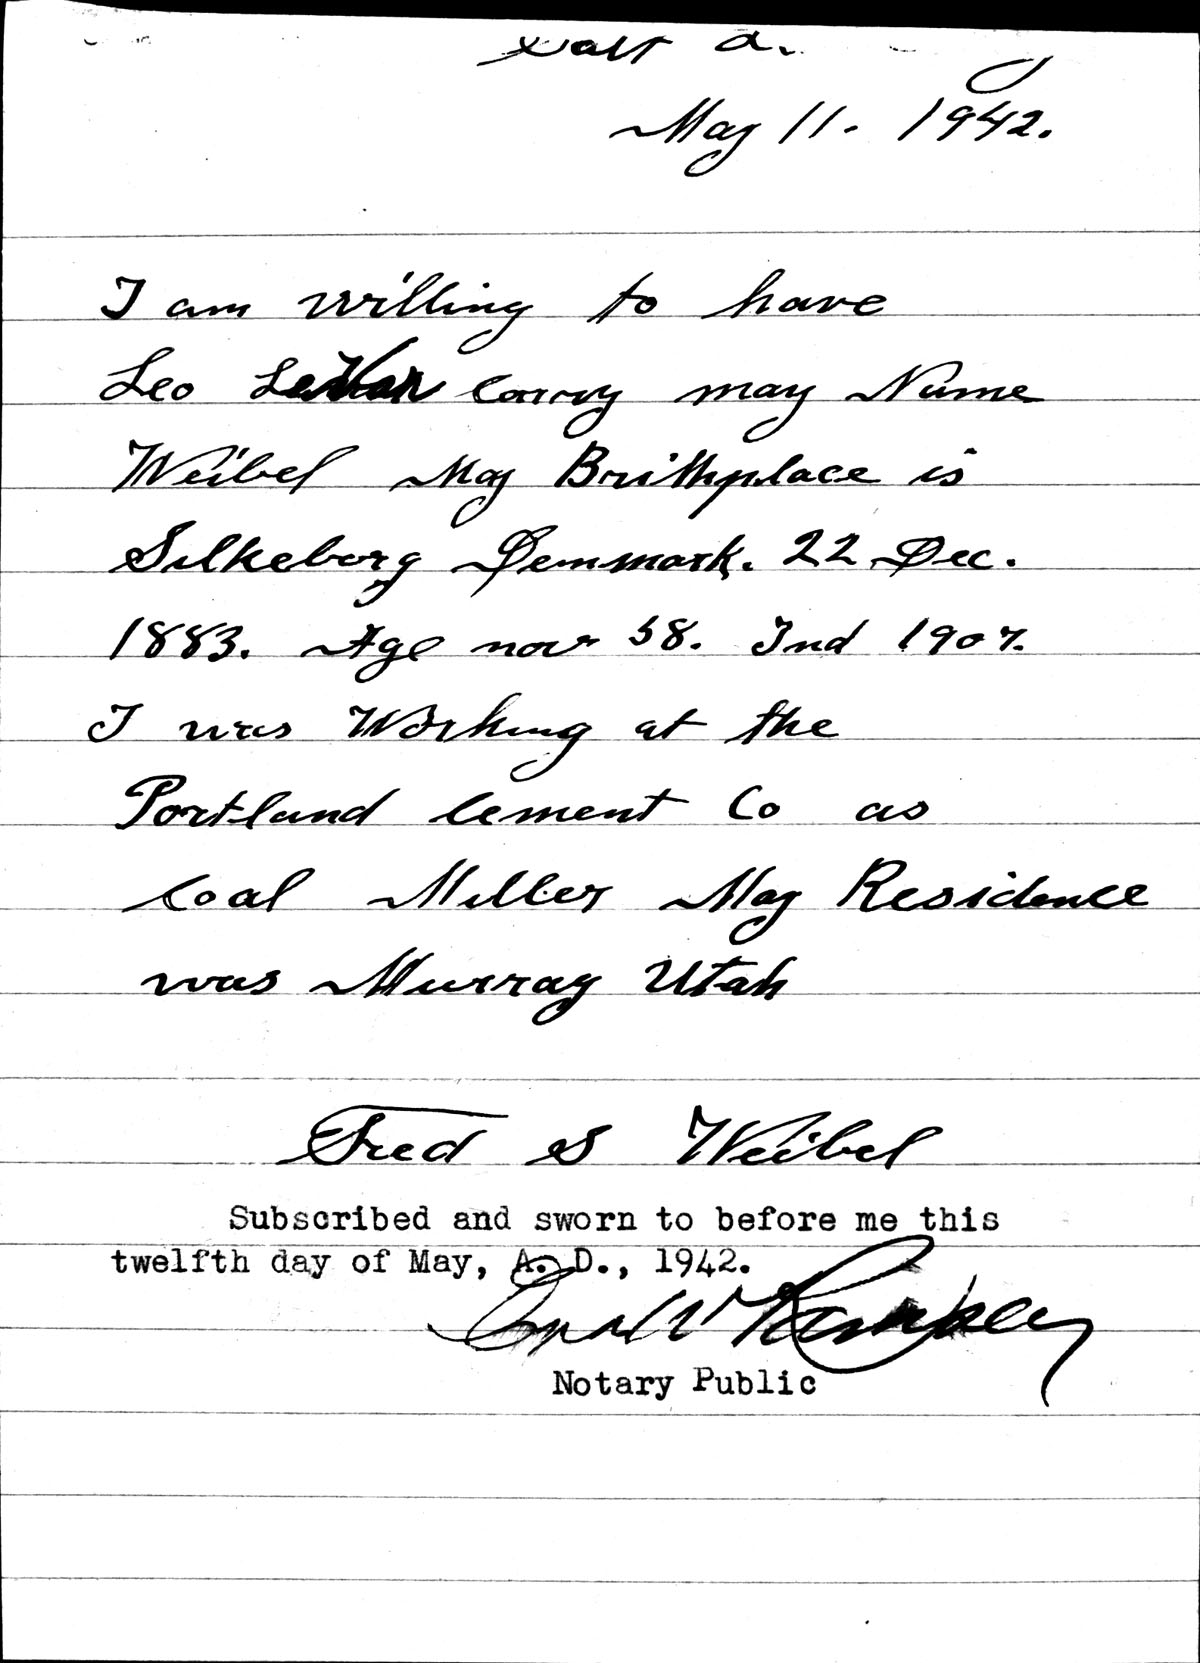 May 11. 1942.
I am willing to have
Leo LeVar carry may Name
Weibel May Brithplace is
Silkeborg Denmark. 22 Dec.
1883. Age now 58. Ind 1907.
I was Working at the
Portland Cement Co as
Coal Miller May Residence
was Murray Utah
Fred S Weibel
Subscribed and sworn to before me this
twelfth day of May, A. D., 1942.
Notary Public